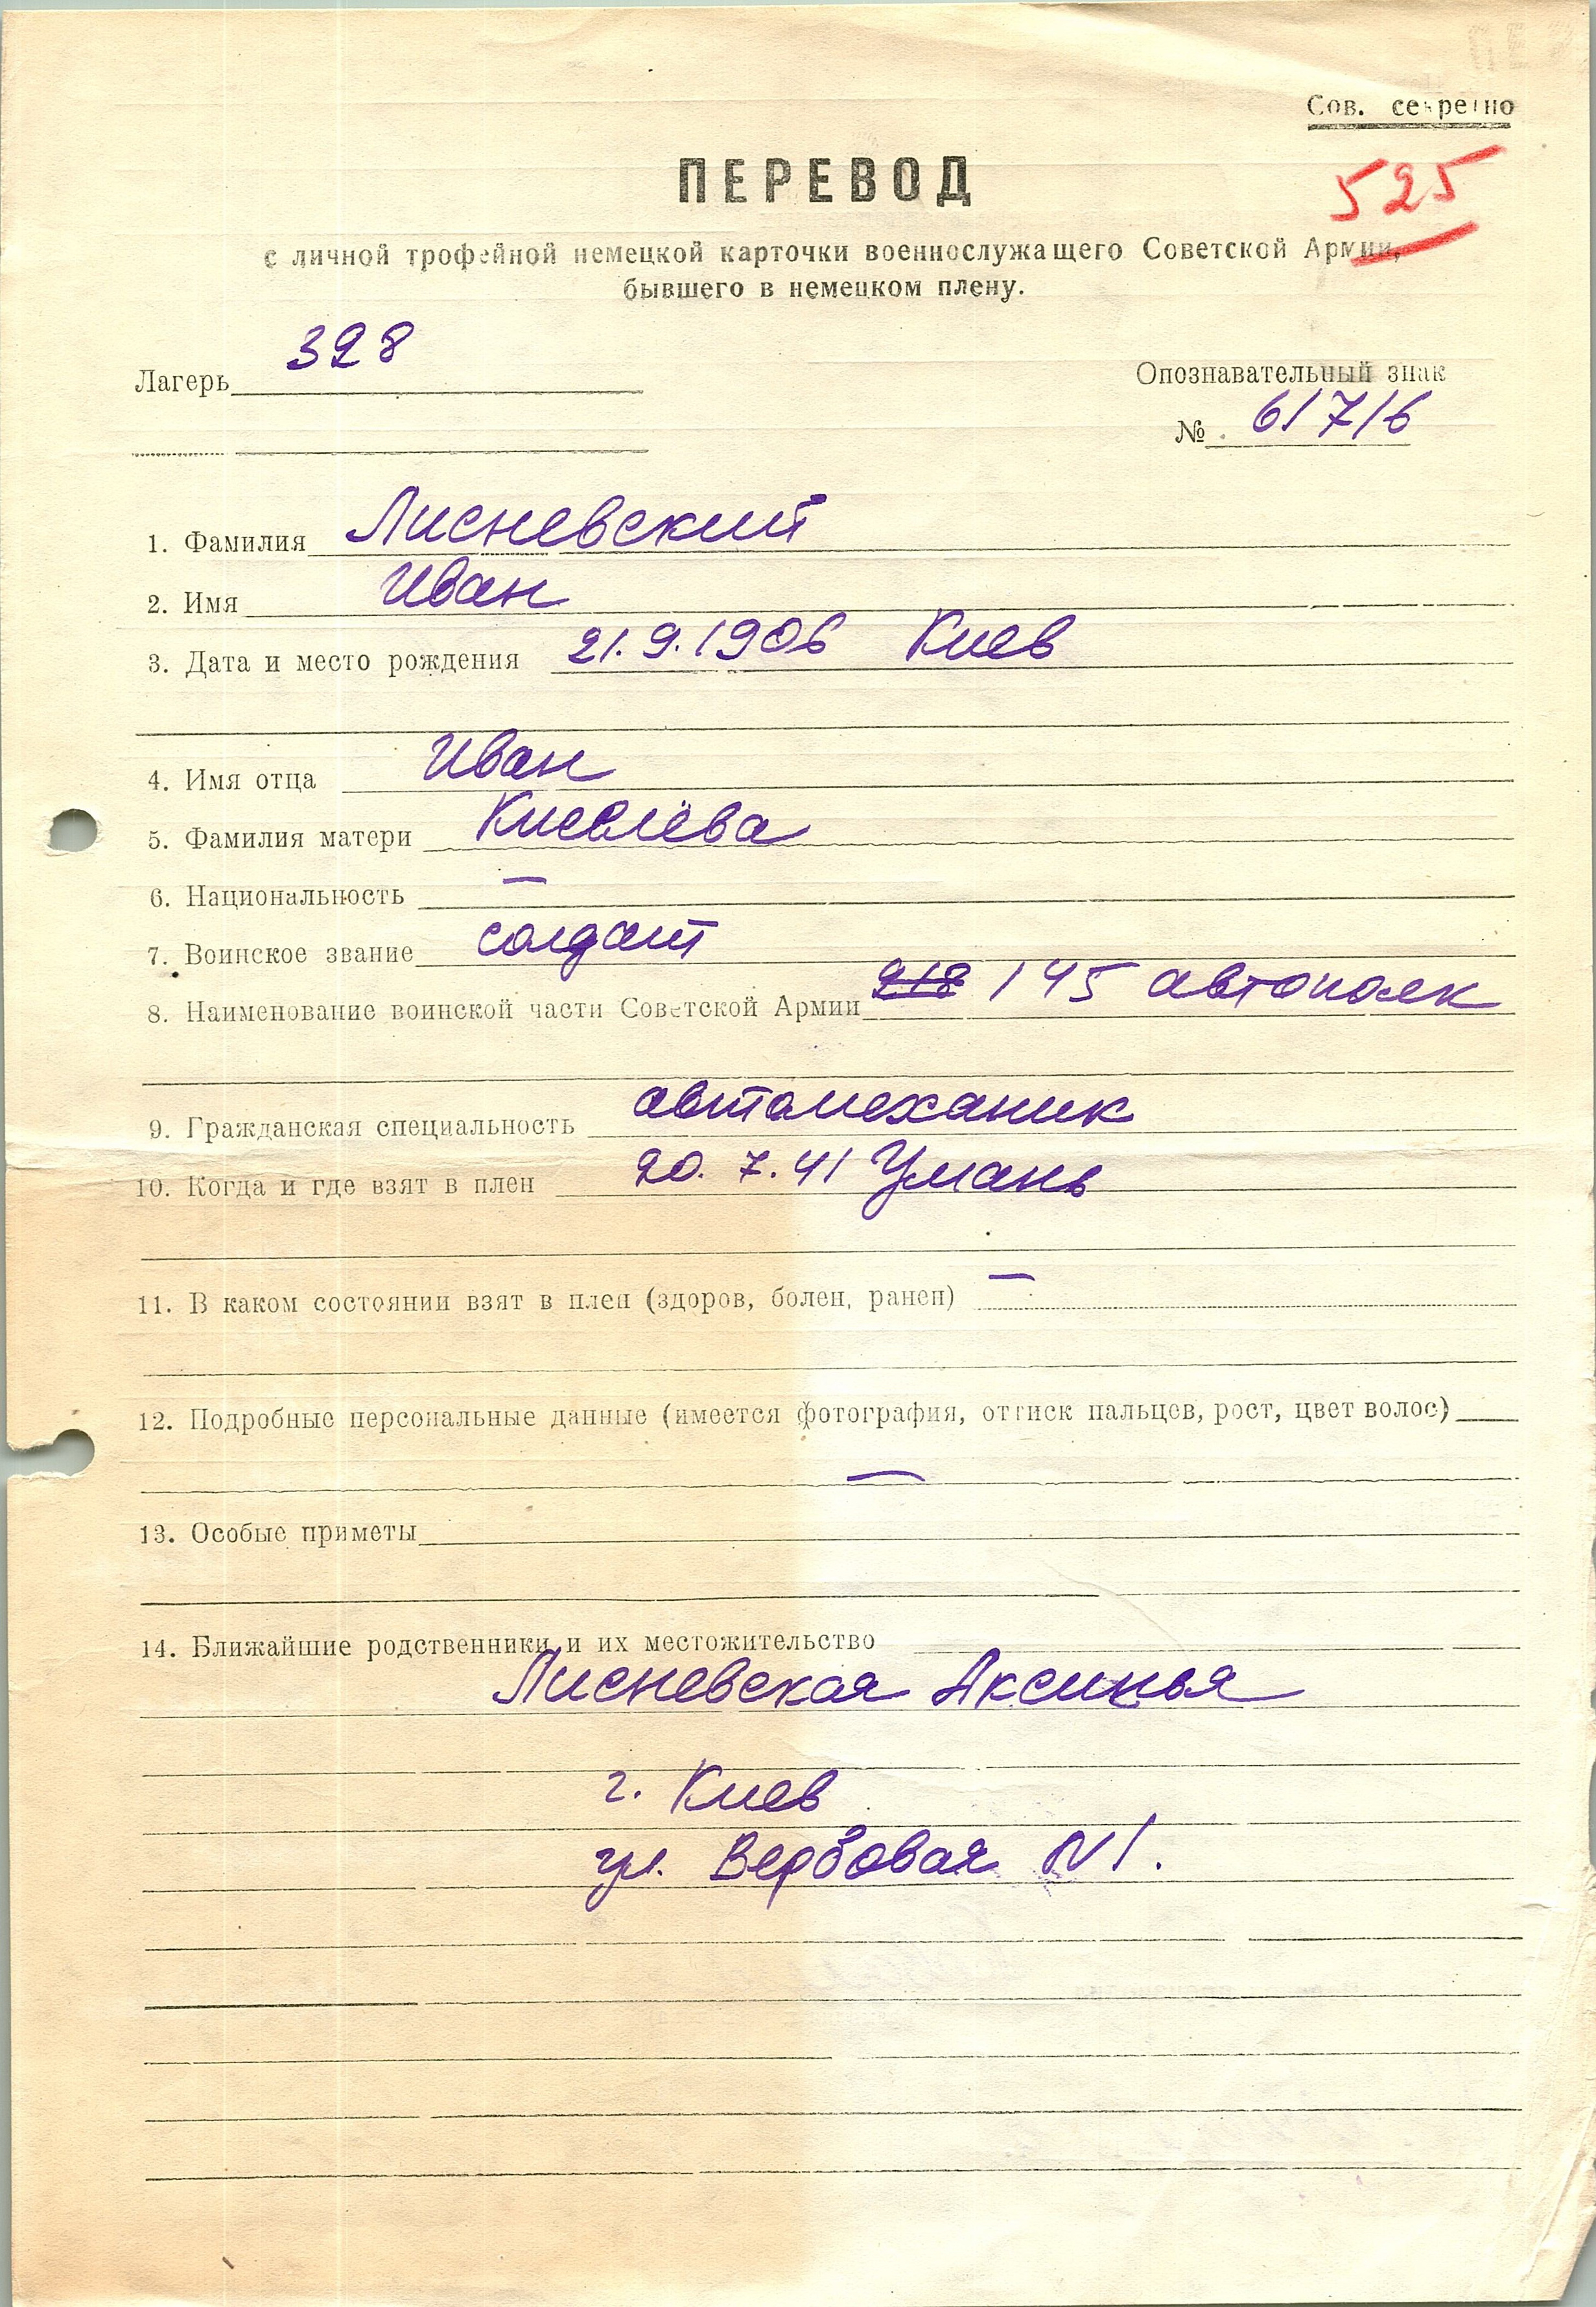 Сов. секретно
ПЕРЕВОД
525
с личной трофейной немецкой карточки военнослужащего Советской Армии,
бывшего в немецком плену.
Лагерь 328
Опознавательный знак
№ 61716
1. Фамилия Лисневский
2. Имя Иван
3. Дата и место рождения 21.9.1906 Киев
4. Имя отца Иван
5. Фамилия матери Киселёва
6. Национальность —
7. Воинское звание солдат
8. Наименование воинской части Советской Армии 218 145 автополк
9. Гражданская специальность автомеханик
10. Когда и где взят в плен 20. 7. 41 Умань
11. В каком состоянии взят в плен (здоров, болен, ранен) —
12. Подробные персональные данные (имеется фотография, оттиск пальцев, рост, цвет волос)
—
13. Особые приметы
14. Ближайшие родственники и их местожительство
Лисневская Аксинья
г. Киев
ул. Вербовая N 1.